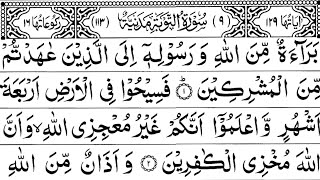 اٰیَاتُهَا ۱۲۹ (۹) سُوْرَةُ التَّوْبَةِ مَدَنِیَّةٌ (۱۱۳) رُكُوْعَاتُهَا ۱۶
بَرَآءَةٌ مِّنَ اللّٰهِ وَ رَسُوْلِهٖۤ اِلَى الَّذِیْنَ عٰهَدْتُّمْ
مِّنَ الْمُشْرِكِیْنَ ۝۱ فَسِیْحُوْا فِی الْاَرْضِ اَرْبَعَةَ
اَشْهُرٍ وَّ اعْلَمُوْۤا اَنَّكُمْ غَیْرُ مُعْجِزِی اللّٰهِ ۙ وَ اَنَّ
اللّٰهَ مُخْزِی الْكٰفِرِیْنَ ۝۲ وَ اَذَانٌ مِّنَ اللّٰهِ